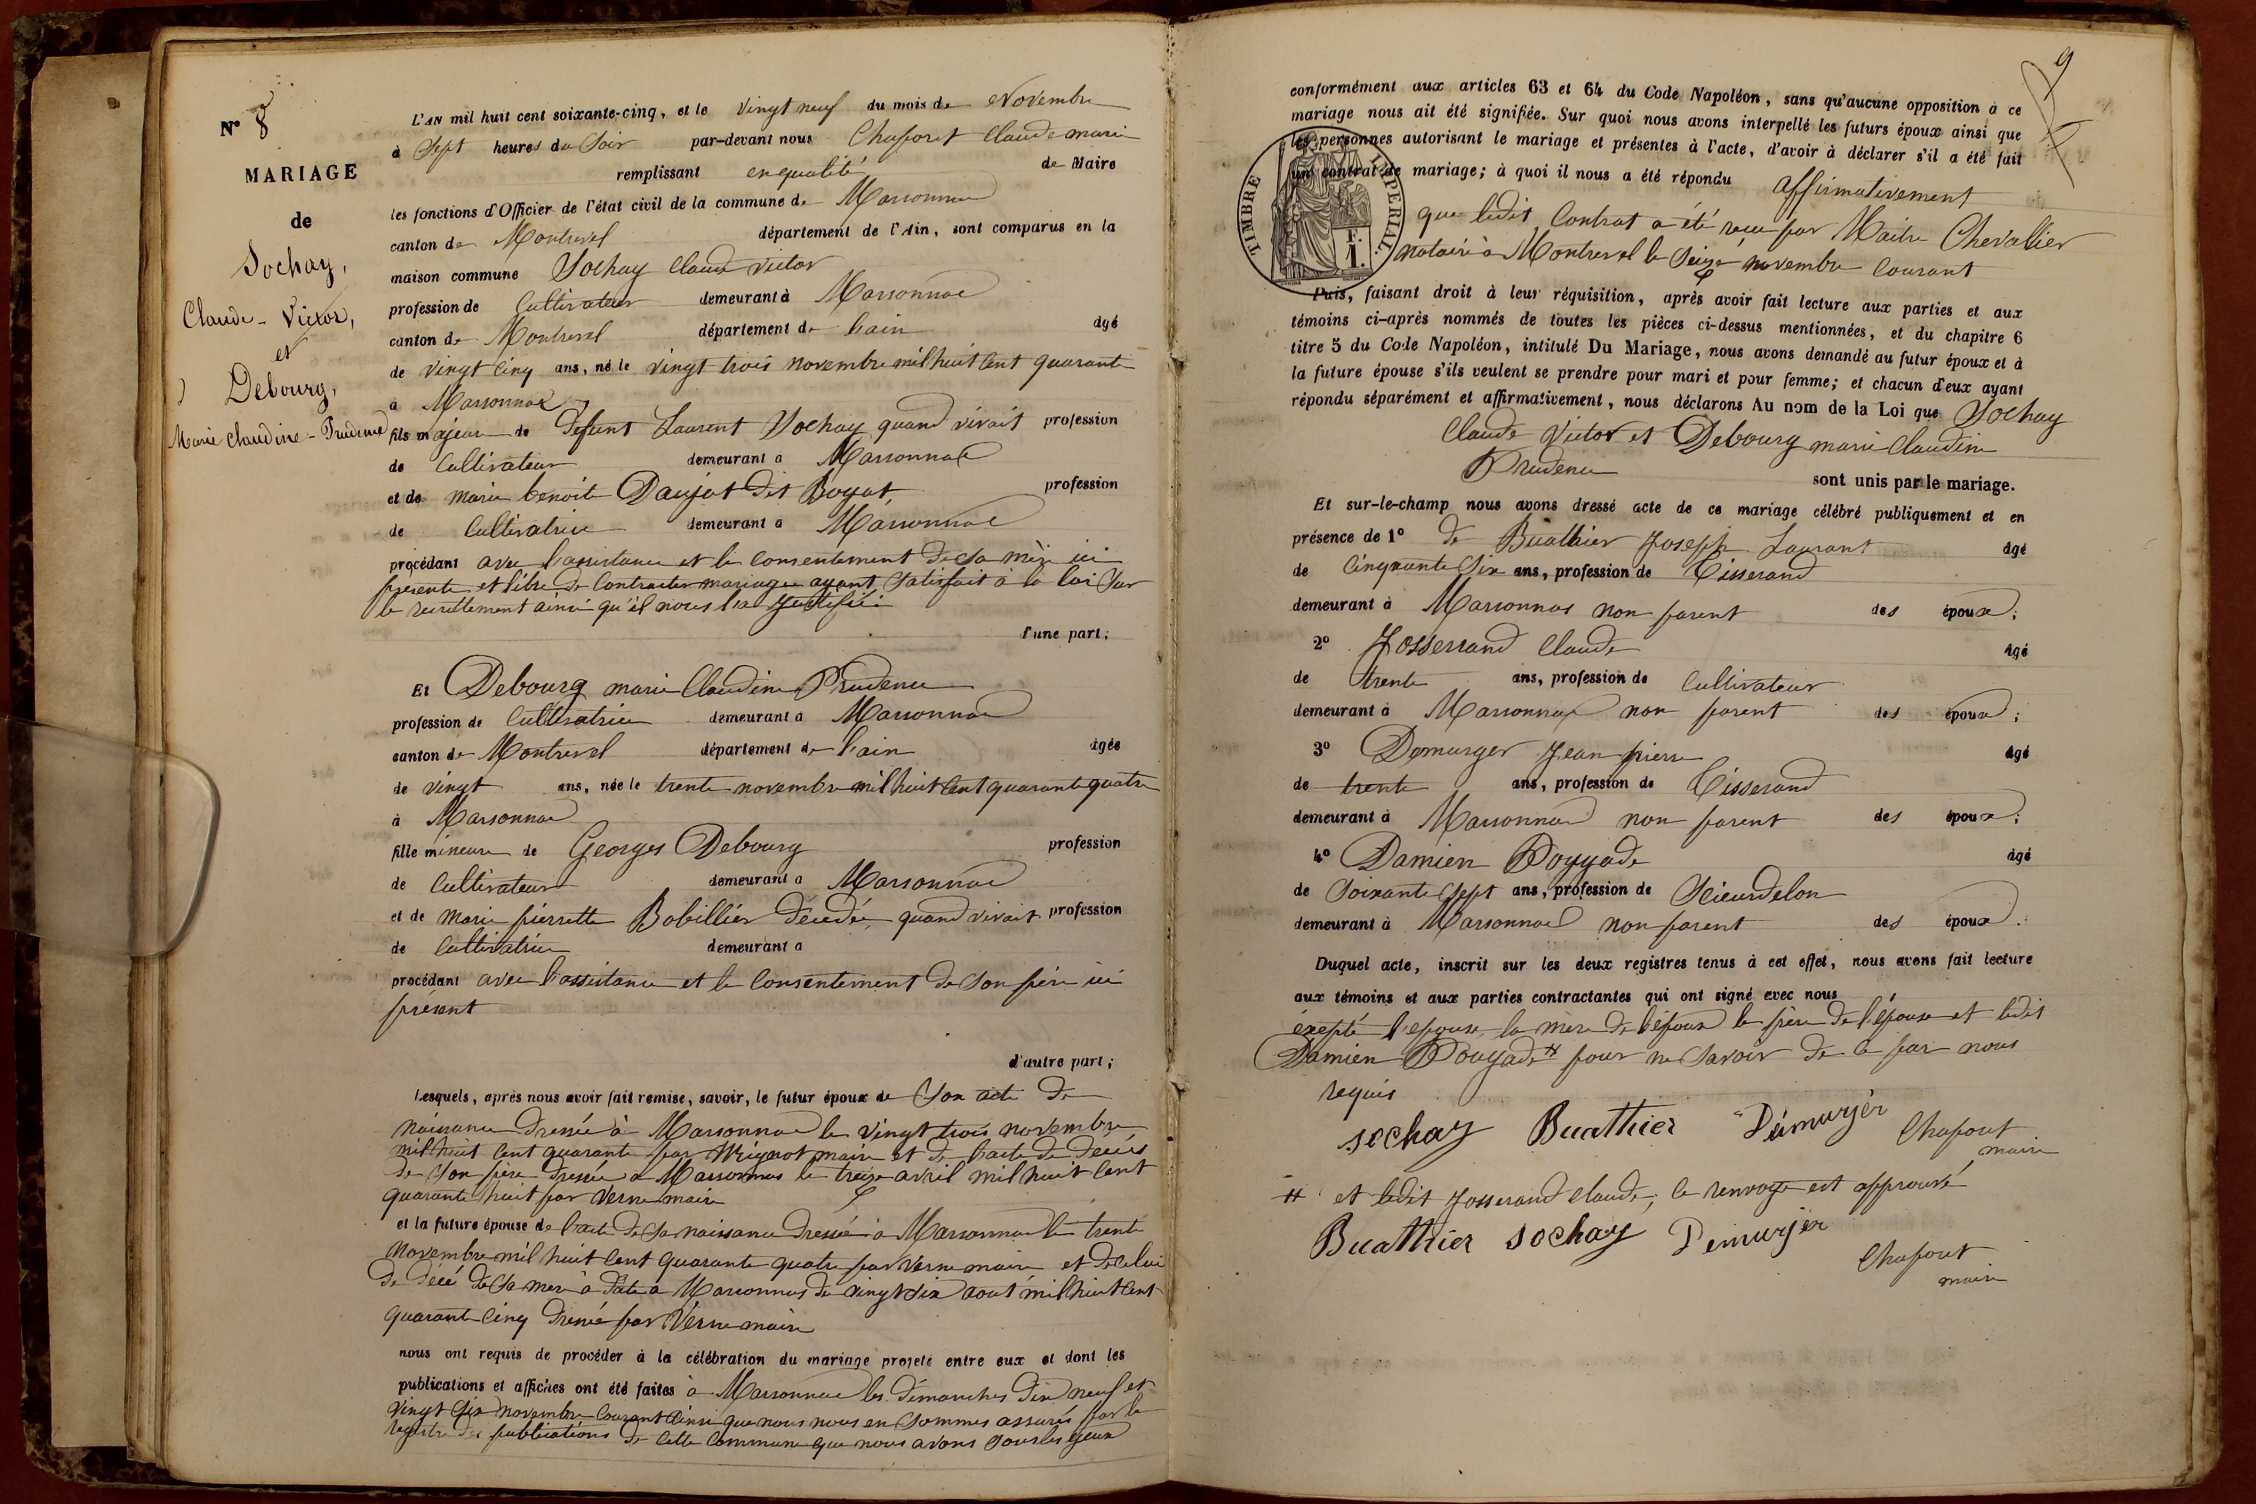 N° 8
MARIAGE
de
Sochay,
Claude-Victor,
et
Debourg,
Marie Claudine-Prudence
L'AN mil huit cent soixante-cinq, et le vingt neuf du mois de Novembre
à Sept heures du Soir par-devant nous Chaforet Claude marie
remplissant en qualité de Maire
les fonctions d'Officier de l'état civil de la commune de Marsonnas
canton de Montrevel département de l'Ain, sont comparus en la
maison commune Sochay Claude victor
profession de Cultivateur demeurant à Marsonnas
canton de Montrevel département de l'ain âgé
de vingt cinq ans, né le vingt trois novembre mil huit cent quarante
à Marsonnas
fils majeur de défunt Laurent Sochay quand vivait profession
de Cultivateur demeurant à Marsonnas
et de marie benoite Daujat dit Boyat, profession
de Cultivatrice demeurant à Marsonnas
procédant avec l'assistance et le consentement de sa mère ici
présente et libre de contracter mariage ayant satisfait à la loi sur
le recrutement ainsi qu'il nous l'a justifié
d'une part;
Et Debourg marie Claudine Prudence
profession de Cultivatrice demeurant à Marsonnas
canton de Montrevel département de l'ain âgée
de vingt ans, née le trente novembre mil huit cent quarante quatre
à Marsonnas
fille mineure de Georges Debourg profession
de Cultivateur demeurant à Marsonnas
et de marie pierrette Bobillier décédée, quand vivait profession
de Cultivatrice demeurant à
procédant avec l'assistance et le consentement de son père ici
présent
d'autre part;
Lesquels, après nous avoir fait remise, savoir, le futur époux de son acte de
naissance dressé à Marsonnas le vingt trois novembre
mil huit cent quarante par maire et de l'acte de décès
de son père dressé à Marsonnas le treize avril mil huit cent
quarante huit par Verne maire
et la future épouse de l'acte de sa naissance dressé à Marsonnas le trente
novembre mil huit cent quarante quatre par Verne maire et de celui
de décé de sa mère à date à Marsonnas du vingt six août mil huit cent
quarante cinq dressé par Verne maire
nous ont requis de procéder à la célébration du mariage projeté entre eux et dont les
publications et affiches ont été faites à Marsonnas les dimanches dix neuf et
vingt six novembre courant ainsi que nous nous en sommes assurés par le
registre des publications de cette commune que nous avons sous les yeux
9
conformément aux articles 63 et 64 du Code Napoléon, sans qu'aucune opposition à ce
mariage nous ait été signifiée. Sur quoi nous avons interpellé les futurs époux ainsi que
les personnes autorisant le mariage et présentes à l'acte, d'avoir à déclarer s'il a été fait
un contrat de mariage; à quoi il nous a été répondu affirmativement
que ledit contrat a été reçu par Maitre Chevallier
notaire à Montrevel le seize novembre courant
TIMBRE IMPERIAL
Puis, faisant droit à leur réquisition, après avoir fait lecture aux parties et aux
témoins ci-après nommés de toutes les pièces ci-dessus mentionnées, et du chapitre 6
titre 5 du Code Napoléon, intitulé Du Mariage, nous avons demandé au futur époux et à
la future épouse s'ils veulent se prendre pour mari et pour femme; et chacun d'eux ayant
répondu séparément et affirmativement, nous déclarons Au nom de la Loi que Sochay
Claude Victor et Debourg marie Claudine
Prudence sont unis par le mariage.
Et sur-le-champ nous avons dressé acte de ce mariage célébré publiquement et en
présence de 1° de Buathier Joseph Laurant âgé
de cinquante six ans, profession de Tisserand
demeurant à Marsonnas non parent des époux;
2° Josserand Claude âgé
de trente ans, profession de Cultivateur
demeurant à Marsonnas non parent des époux;
3° Demurger Jean pierre âgé
de trente ans, profession de Tisserand
demeurant à Marsonnas non parent des époux;
4° Damien Pouyade âgé
de soixante sept ans, profession de Scieur de lon
demeurant à Marsonnas non parent des époux.
Duquel acte, inscrit sur les deux registres tenus à cet effet, nous avons fait lecture
aux témoins et aux parties contractantes qui ont signé avec nous
éxcepté l'épouse, la mère de l'époux le père de l'épouse et ledit
Damien Pouyade # pour ne savoir de ce par nous
requis
sochay Buathier Démurjer Chaforet
maire
# et ledit Josserand Claude, le renvoye est approuvé
Buathier sochay Demurjer
Chaforet
maire